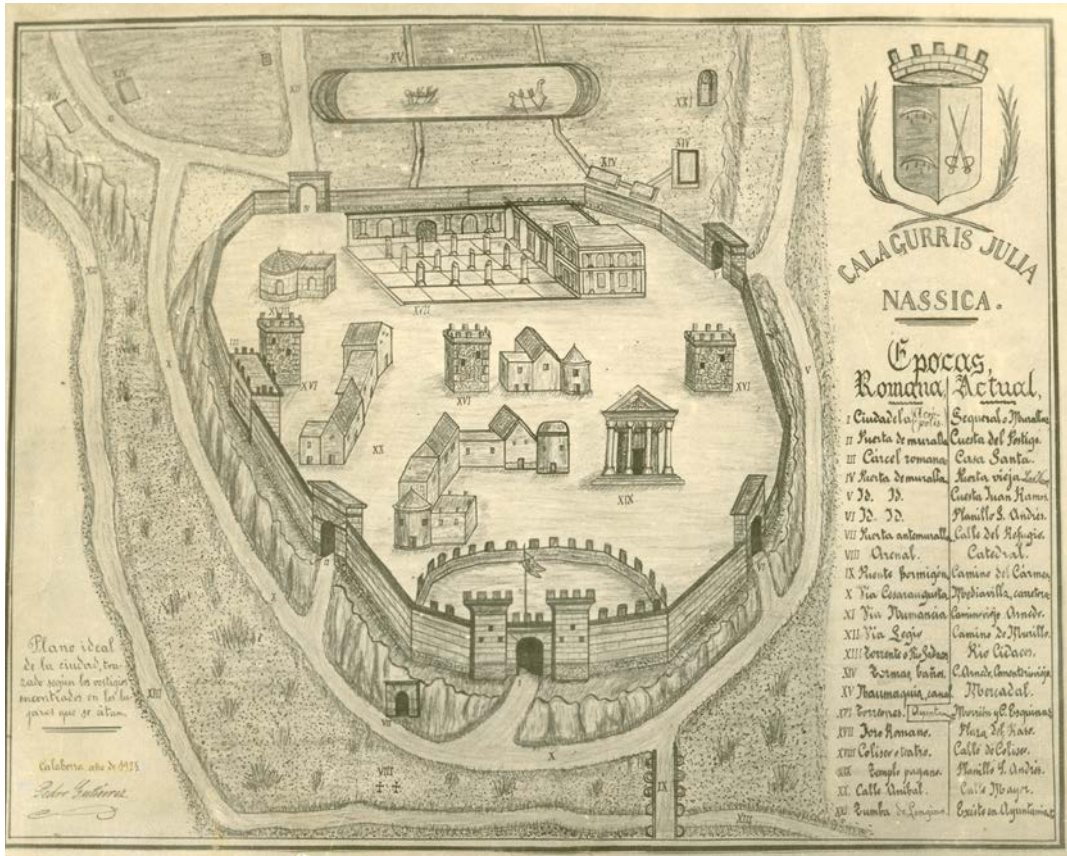 XV
XIV
XIV
XII
XXI
XIV
XIV
XVII
XVI
XVI
XVI
V
X
XX
XIX
XIII
VII
VIII
X
IX
XIII
XIII
CALAGURRIS JULIA
NASSICA.
Epocas,
Romana, Actual,
I Ciudadela Sequeral o Murallas
II Puerta de muralla Cuesta del Postigo.
III Cárcel romana Casa Santa.
IV Puerta de muralla, Puerta vieja
V Id. Id. Cuesta Juan Ramos.
VI Id. Id. Planillo S. Andrés.
VII Puerta antemuralla Calle del Refugio.
VIII Arenal. Catedral.
IX Puente hormigón, Camino del Cármen
X Via Cesaraugusta, Mediavilla, carretera
XI Via Numancia Camino viejo Arnedo.
XII Via Legio Camino de Murillo.
XIII Torrente o Rio Rio Cidacos.
XIV Termas, baños. C. Arnedo, Cementerio viejo
XV Naumaquia, canal Mercadal.
XVI Torreones. Morrión y C.
XVII Foro Romano. Plaza del Raso.
XVIII Coliseo o teatro. Calle de Coliseo.
XIX Templo pagano. Planillo S. Andrés.
XX. Calle Anibal. Calle Mayor.
XXI. Tumba de Existe en Ayuntamiento
Plano ideal
de la ciudad, tra-
zado según los vestigios
encontrados en los lu-
gares que se citan.
Calahorra año de
Pedro Gutiérrez